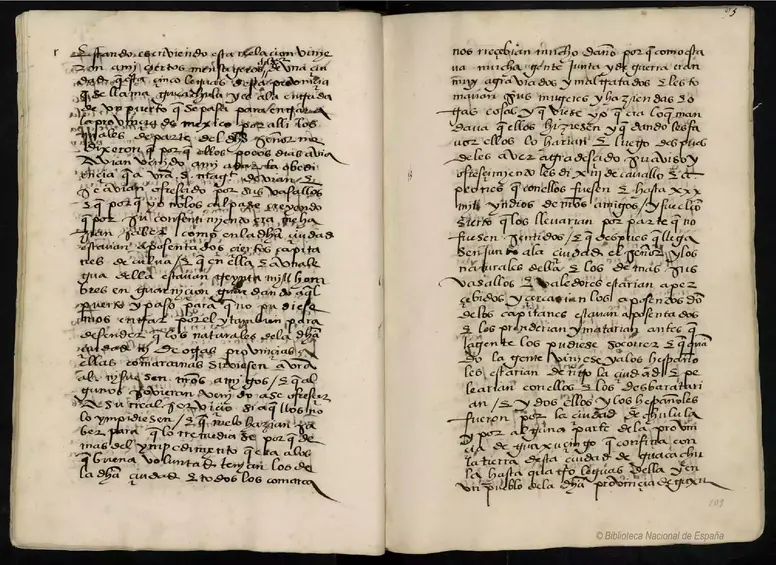 r
Estando escriviendo esta relacion vinie
ron a mi çiertos mensajeros de una çiu
dad questa çinco leguas desta provinçia
q se llama guacachula y es a la entrada
de un puerto q se pasa para entrar a
la provinçia de mexico por alli los
quales de parte del dho señor me
dixeron q por q ellos pocos dias avia
avian venido a mi a dar la obedi
ençia q a vra. magt devian E
se avian ofresçido por sus vasallos
E q por q yo no los culpase creyendo
q por su consentimiento era me ha
zian saber como en la dha çiudad
estavan aposentados çiertos capita
nes de culua / E q en ella E a una le
gua della estavan treynta mill hom
bres en guarniçion guardando aql
puerto y paso para q no pudiese
mos entrar por el y tambien para
defender q los naturales de la dha
çiudad ni de otras provinçias a
ellas comarcanas sirviesen a vra
al. ni fuesen nros amigos / E q al
gunos ovieran venido a se ofresçer
a su real serviçio si aqllos no
lo ympidiesen / E q me lo hazian sa
ber para q lo remediase por q de
mas del ympedimento q era a los
q buena voluntad tenian los de
la dha çiudad E todos los comarca
nos reçebian mucho daño por q como esta
va mucha gente junta y de guerra eran
muy agraviados y maltratados E les to
mavan sus mugeres y haziendas E o
tras cosas y q viese yo q era lo q man
dava q ellos hiziesen y q dandoles fa
vor ellos lo harian E luego despues
deles aver agradesçido su aviso y
ofresçimiento les di xiii de cavallo E dozientos
peones q con ellos fuesen E hasta xxx
mill yndios de nros amigos / y fue el con
çierto q los llevarian por parte q no
fuesen sentidos / E q despues q llega
sen junto a la çiudad el señor y los
naturales della E los de mas sus
vasallos E valedores estarian aper
çebidos y çercarian los aposentos do
de los capitanes estavan aposentados
E los prenderian y matarian antes q
la gente los pudiese socorrer E q quan
do la gente viniese ya los españo
les estarian dentro la çiudad E pe
learian con ellos E los desbaratari
an / E ydos ellos y los hespañoles
fueron por la çiudad de chulula
y por alguna parte de la provin
çia de guaxuçingo q confina con
la tierra desta çiudad de guacachu
la hasta quatro leguas della y en
un pueblo de la dha provinçia de guaxu
© Biblioteca Nacional de España